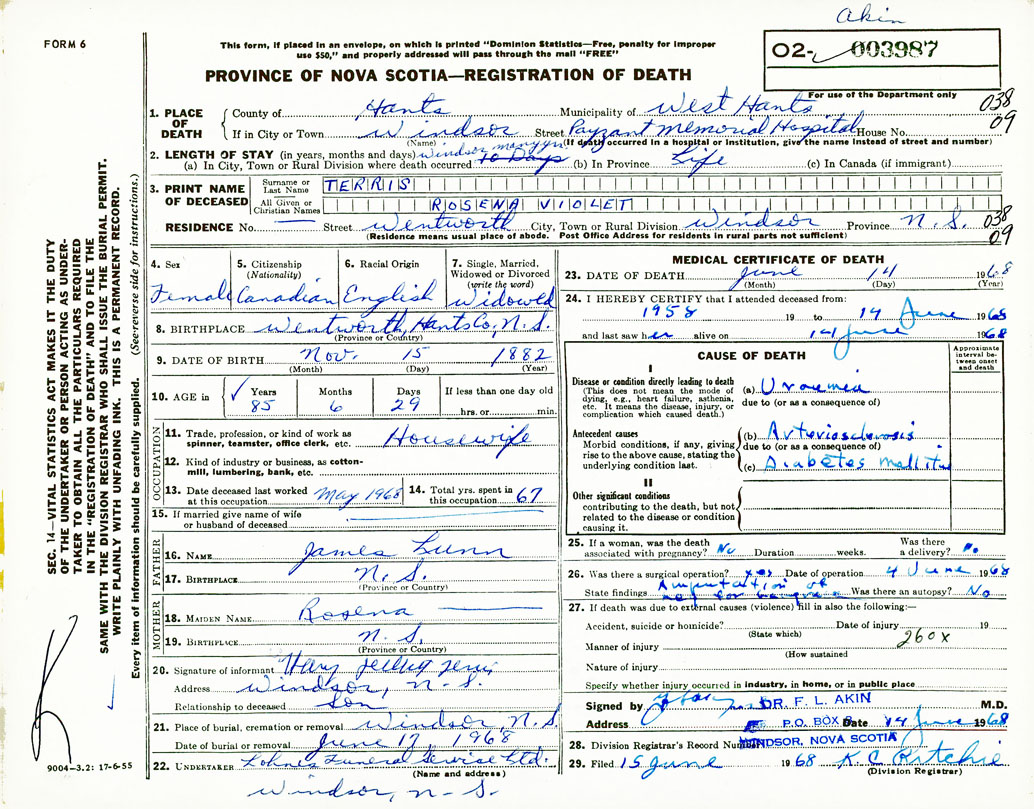 Akin
FORM 6
This form, if placed in an envelope, on which is printed "Dominion Statistics—Free, penalty for improper
use $50," and properly addressed will pass through the mail "FREE"
O2- 003987
PROVINCE OF NOVA SCOTIA—REGISTRATION OF DEATH
For use of the Department only
038
09
1. PLACE OF DEATH
County of Hants Municipality of West Hants
If in City or Town Windsor Street Payzant Memorial Hospital House No.
(Name) (If death occurred in a hospital or institution, give the name instead of street and number)
2. LENGTH OF STAY (in years, months and days)
(a) In City, Town or Rural Division where death occurred Windsor many yrs 10 Days (b) In Province Life (c) In Canada (if immigrant)
3. PRINT NAME OF DECEASED
Surname or Last Name TERRIS
All Given or Christian Names ROSENA VIOLET
RESIDENCE No. Street Wentworth City, Town or Rural Division Windsor Province N. S.
038
09
(Residence means usual place of abode. Post Office Address for residents in rural parts not sufficient)
4. Sex Female
5. Citizenship (Nationality) Canadian
6. Racial Origin English
7. Single, Married, Widowed or Divorced (write the word) Widowed
8. BIRTHPLACE Wentworth, Hants Co, N. S.
(Province or Country)
9. DATE OF BIRTH Nov. 15 1882
(Month) (Day) (Year)
10. AGE in Years 85 Months 6 Days 29 If less than one day old
hrs. or min.
OCCUPATION
11. Trade, profession, or kind of work as spinner, teamster, office clerk, etc. Housewife
12. Kind of industry or business, as cotton-mill, lumbering, bank, etc.
13. Date deceased last worked at this occupation May 1968
14. Total yrs. spent in this occupation 67
15. If married give name of wife or husband of deceased
FATHER
16. NAME James Lunn
17. BIRTHPLACE N. S.
(Province or Country)
MOTHER
18. MAIDEN NAME Rosena
19. BIRTHPLACE N. S.
(Province or Country)
20. Signature of informant
Address Windsor, N. S.
Relationship to deceased Son
21. Place of burial, cremation or removal Windsor, N. S.
Date of burial or removal June 17, 1968
22. UNDERTAKER Lohnes Funeral Service Ltd.
(Name and address)
Windsor, N. S.
MEDICAL CERTIFICATE OF DEATH
23. DATE OF DEATH June 14 1968
(Month) (Day) (Year)
24. I HEREBY CERTIFY that I attended deceased from:
1958 19 to 14 June 1968
and last saw her alive on 14 June 1968
CAUSE OF DEATH
Approximate interval between onset and death
I
Disease or condition directly leading to death
(This does not mean the mode of dying, e.g., heart failure, asthenia, etc. It means the disease, injury, or complication which caused death.)
(a) Uraemia
due to (or as a consequence of)
Antecedent causes
Morbid conditions, if any, giving rise to the above cause, stating the underlying condition last.
(b) Arteriosclerosis
due to (or as a consequence of)
(c) Diabetes mellitus
II
Other significant conditions
contributing to the death, but not related to the disease or condition causing it.
25. If a woman, was the death associated with pregnancy? No Duration weeks. Was there a delivery? No
26. Was there a surgical operation? yes Date of operation 4 June 1968
State findings Amputation of leg for gangrene Was there an autopsy? No
27. If death was due to external causes (violence) fill in also the following:—
Accident, suicide or homicide? Date of injury 19
(State which)
Manner of injury 260X
(How sustained
Nature of injury
Specify whether injury occurred in industry, in home, or in public place
Signed by DR. F. L. AKIN M.D.
Address P.O. BOX Date 14 June 1968
WINDSOR, NOVA SCOTIA
28. Division Registrar's Record Number
29. Filed 15 June 1968 K. C. Ritchie
(Division Registrar)
SEC. 14—VITAL STATISTICS ACT MAKES IT THE DUTY
OF THE UNDERTAKER OR PERSON ACTING AS UNDER-
TAKER TO OBTAIN ALL THE PARTICULARS REQUIRED
IN THE "REGISTRATION OF DEATH" AND TO FILE THE
SAME WITH THE DIVISION REGISTRAR WHO SHALL ISSUE THE BURIAL PERMIT.
WRITE PLAINLY WITH UNFADING INK. THIS IS A PERMANENT RECORD.
Every item of information should be carefully supplied. (See reverse side for instructions.)
9004-3.2: 17-6-55